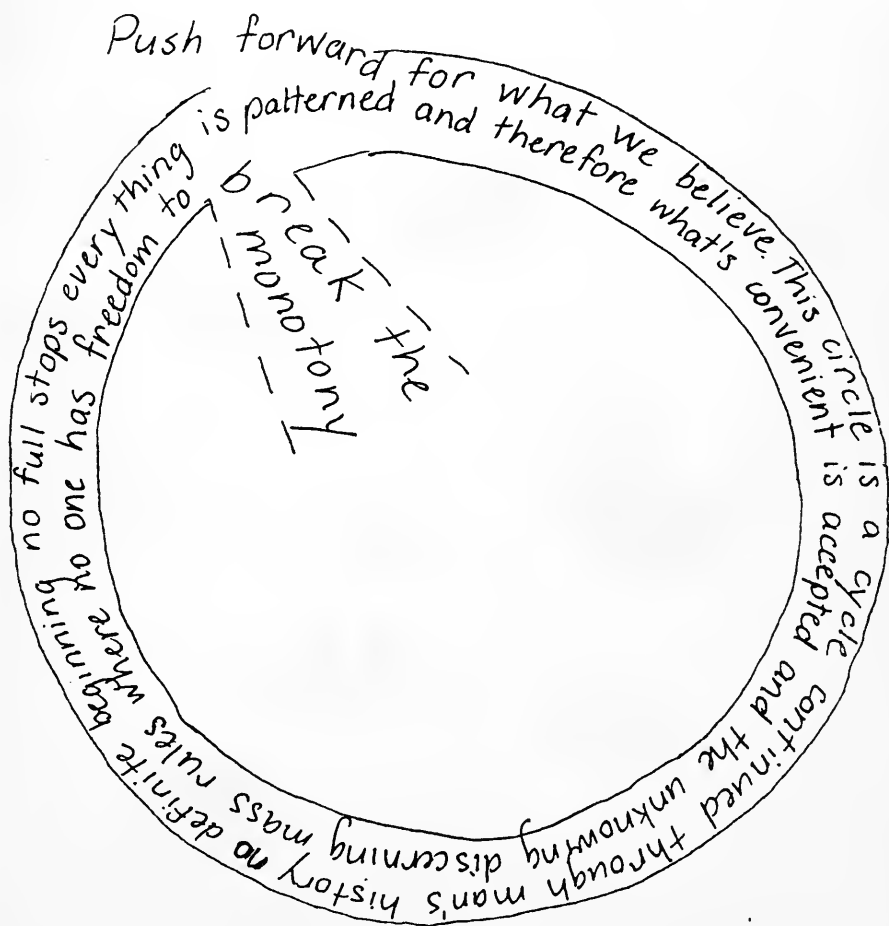 Push forward for what we believe. This circle is a cycle continued through man's history no definite beginning no full stops every thing is patterned and therefore what's convenient is accepted and the unknowing discerning mass rules where no one has freedom to
break the
monotony